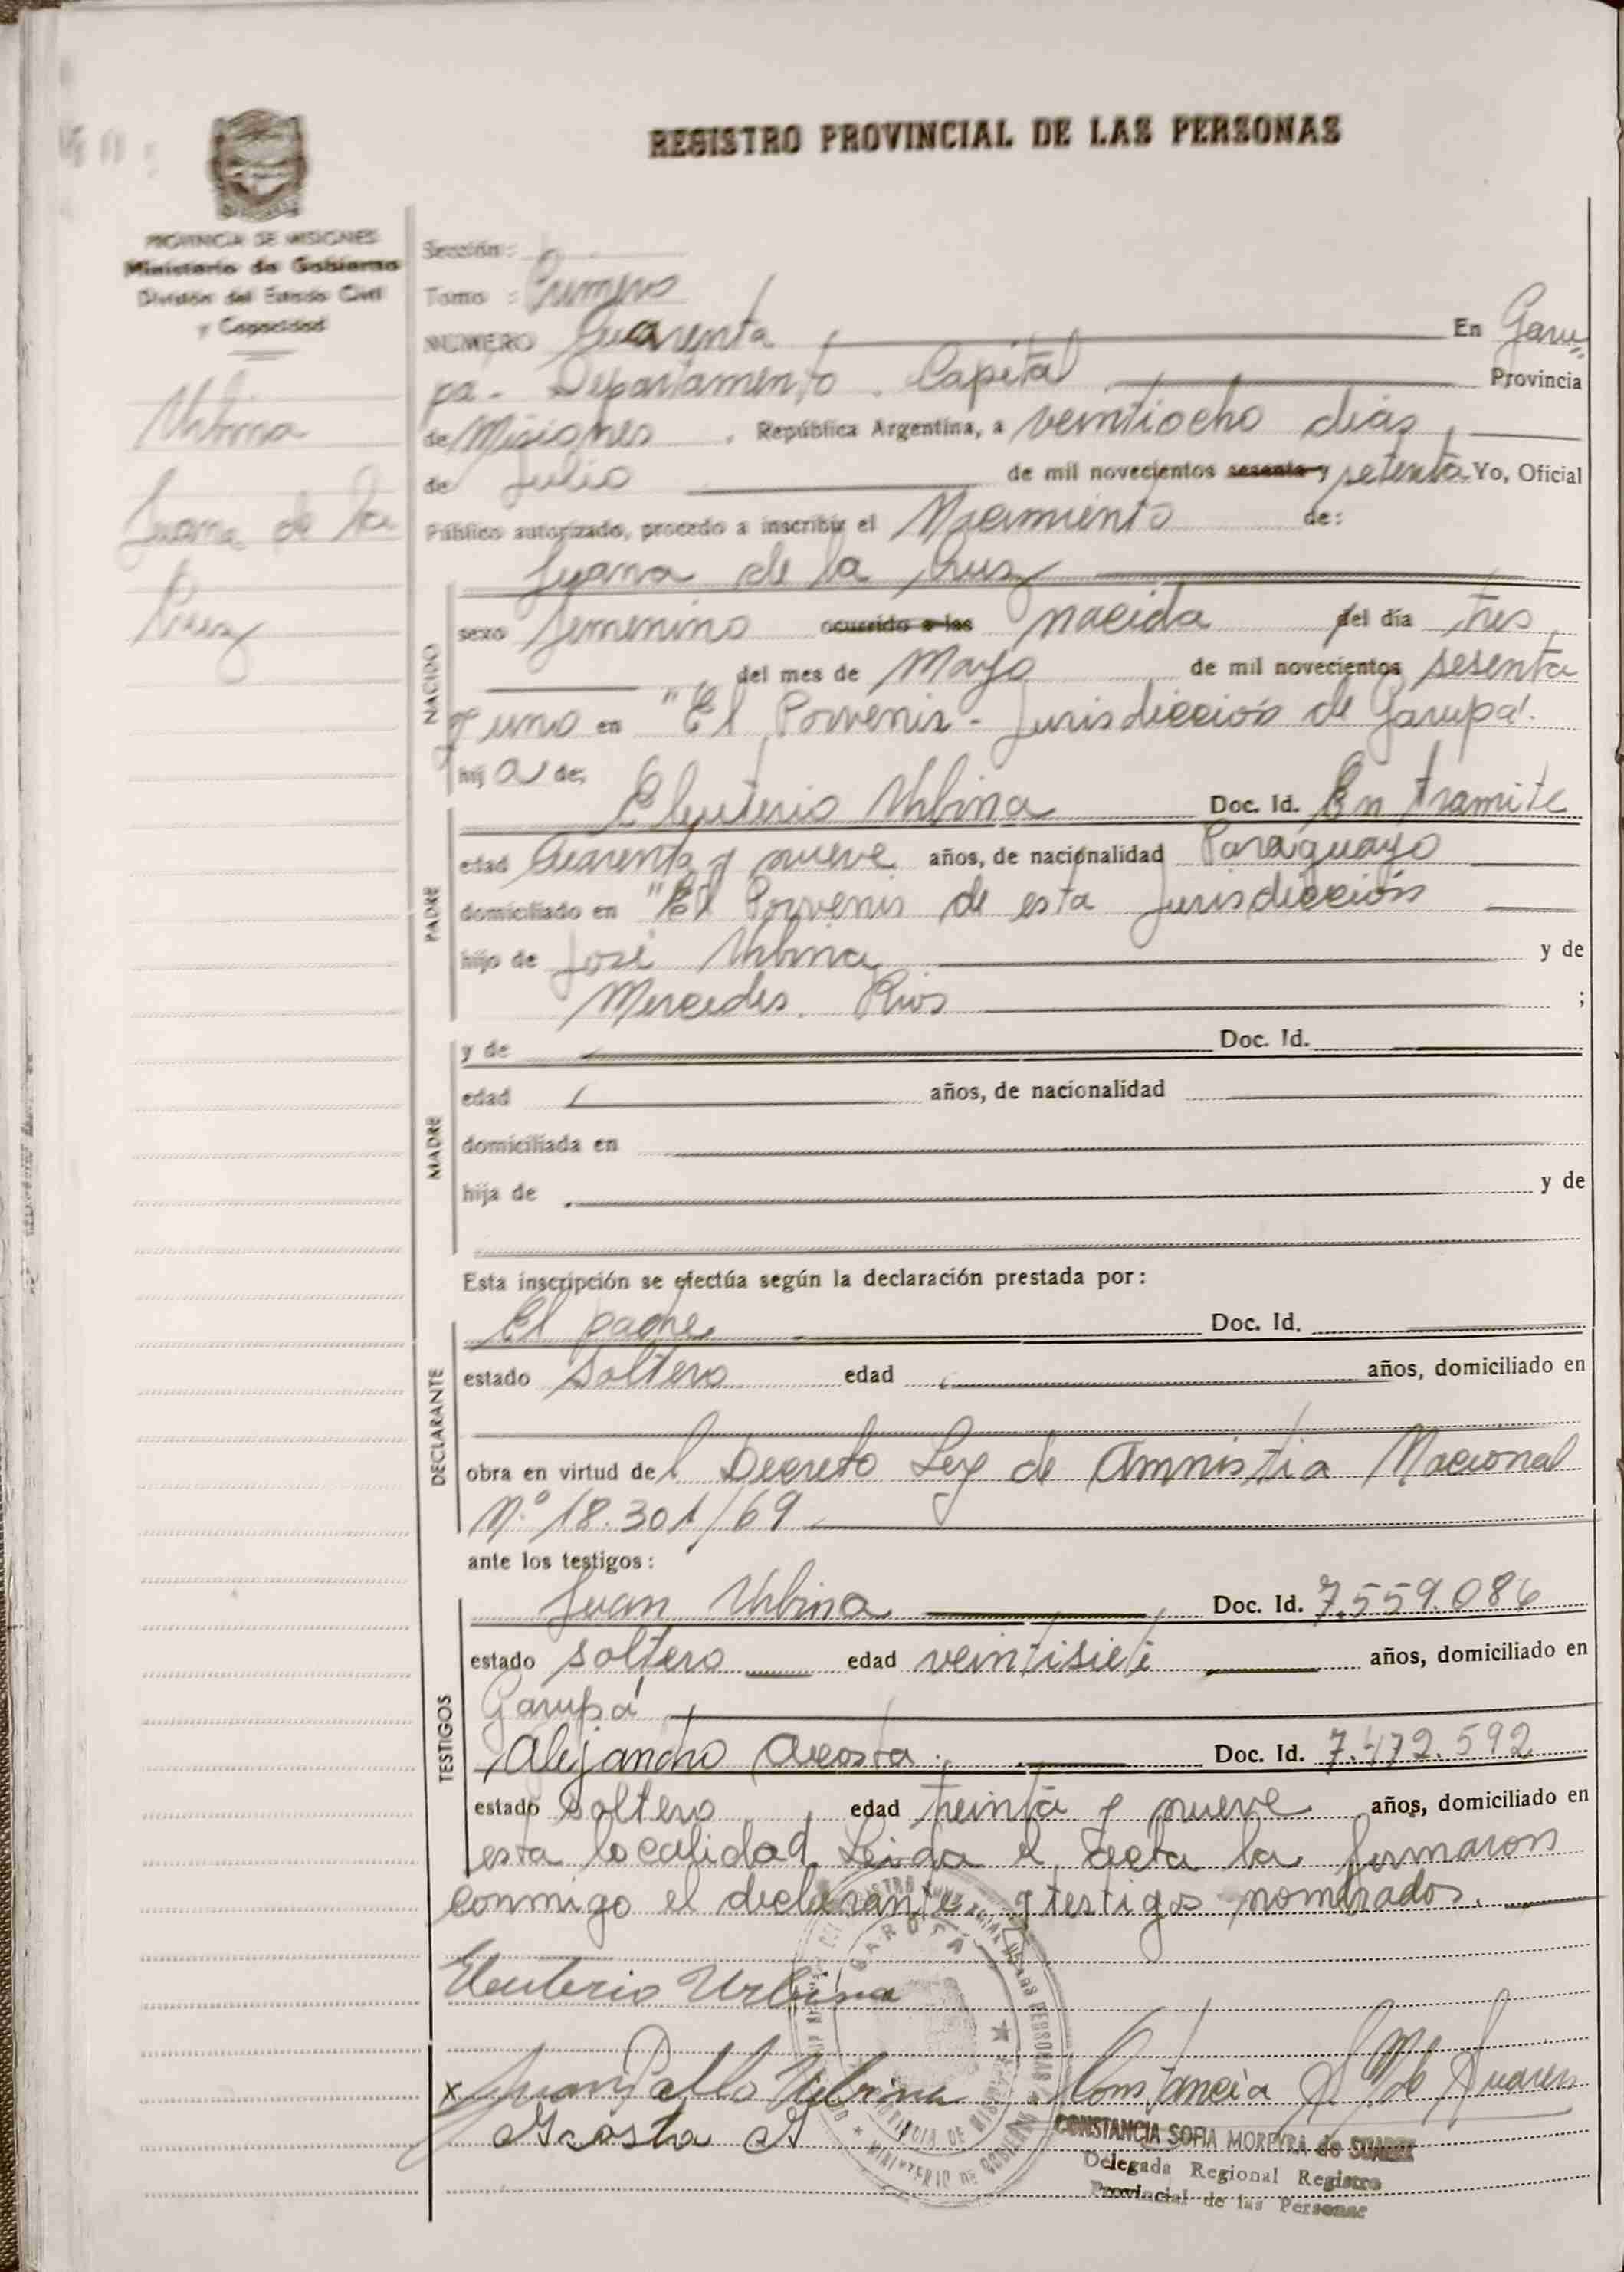 REGISTRO PROVINCIAL DE LAS PERSONAS
PROVINCIA DE MISIONES
Ministerio de Gobierno
División del Estado Civil
y Capacidad
Urbina
Juana de la
Cruz
Sección:
Tomo : Primero
NUMERO Cuarenta En Garu
pa - Departamento . Capital Provincia
de Misiones . República Argentina, a veintiocho dias
de Julio de mil novecientos sesenta y setenta Yo, Oficial
Público autorizado, procedo a inscribir el Nacimiento de:
Juana de la Cruz
NACIDO
sexo femenino ocurrido a las nacida del día tres
del mes de Mayo de mil novecientos sesenta
y uno en "El Porvenir - Jurisdicción de Garupá.
hij a de;
Eleuterio Urbina Doc. Id. En tramite
PADRE
edad Cuarenta y nueve años, de nacionalidad Paraguayo
domiciliado en "El Porvenir de esta Jurisdicción
hijo de José Urbina y de
Mercedes. Rios ;
MADRE
y de Doc. Id.
edad años, de nacionalidad
domiciliada en
hija de y de
Esta inscripción se efectúa según la declaración prestada por:
DECLARANTE
El padre Doc. Id.
estado Soltero edad años, domiciliado en
obra en virtud de l Decreto Ley de Amnistia Nacional
N.º 18.301/69
ante los testigos:
TESTIGOS
Juan Urbina Doc. Id. 7.559.086
estado soltero edad veintisiete años, domiciliado en
Garupá
Alejandro Acosta. Doc. Id. 7.472.592
estado soltero edad treinta y nueve años, domiciliado en
esta localidad. Leida el acta la firmaron
conmigo el declarante y testigos nombrados.
Eleuterio Urbina
x Juan Pablo Urbina Constancia S. M. de Suarez
Acosta A
CONSTANCIA SOFIA MOREYRA de SUAREZ
Delegada Regional Registro
Provincial de las Personas
GARUPÁ
PROVINCIA DE MISIONES
MINISTERIO DE GOBIERNO